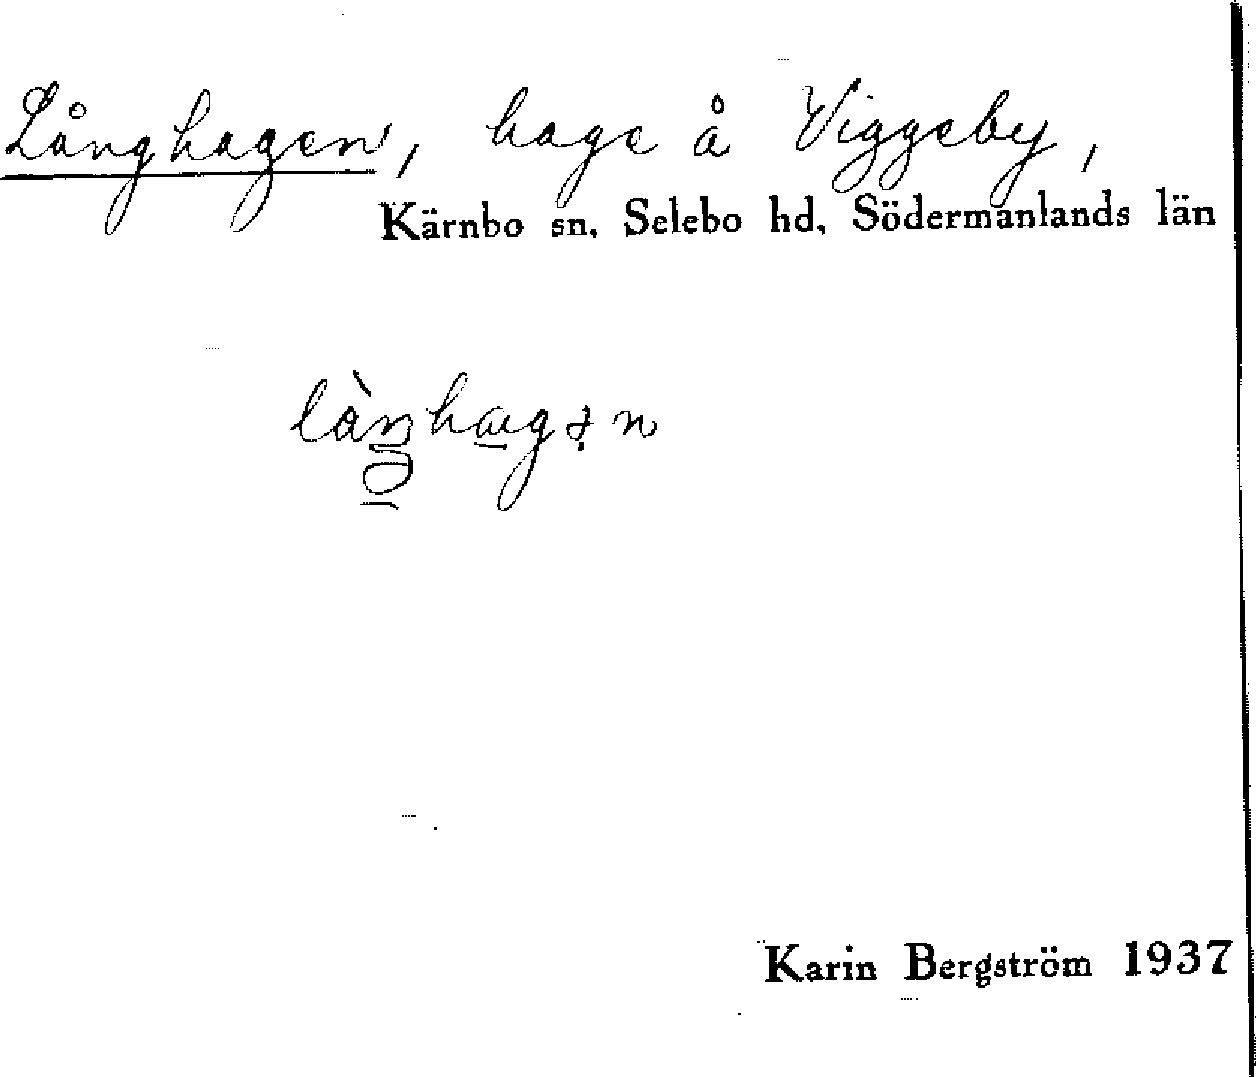 Långhagen, hage å Viggeby,
Kärnbo sn, Selebo hd, Södermanlands län
Karin Bergström 1937